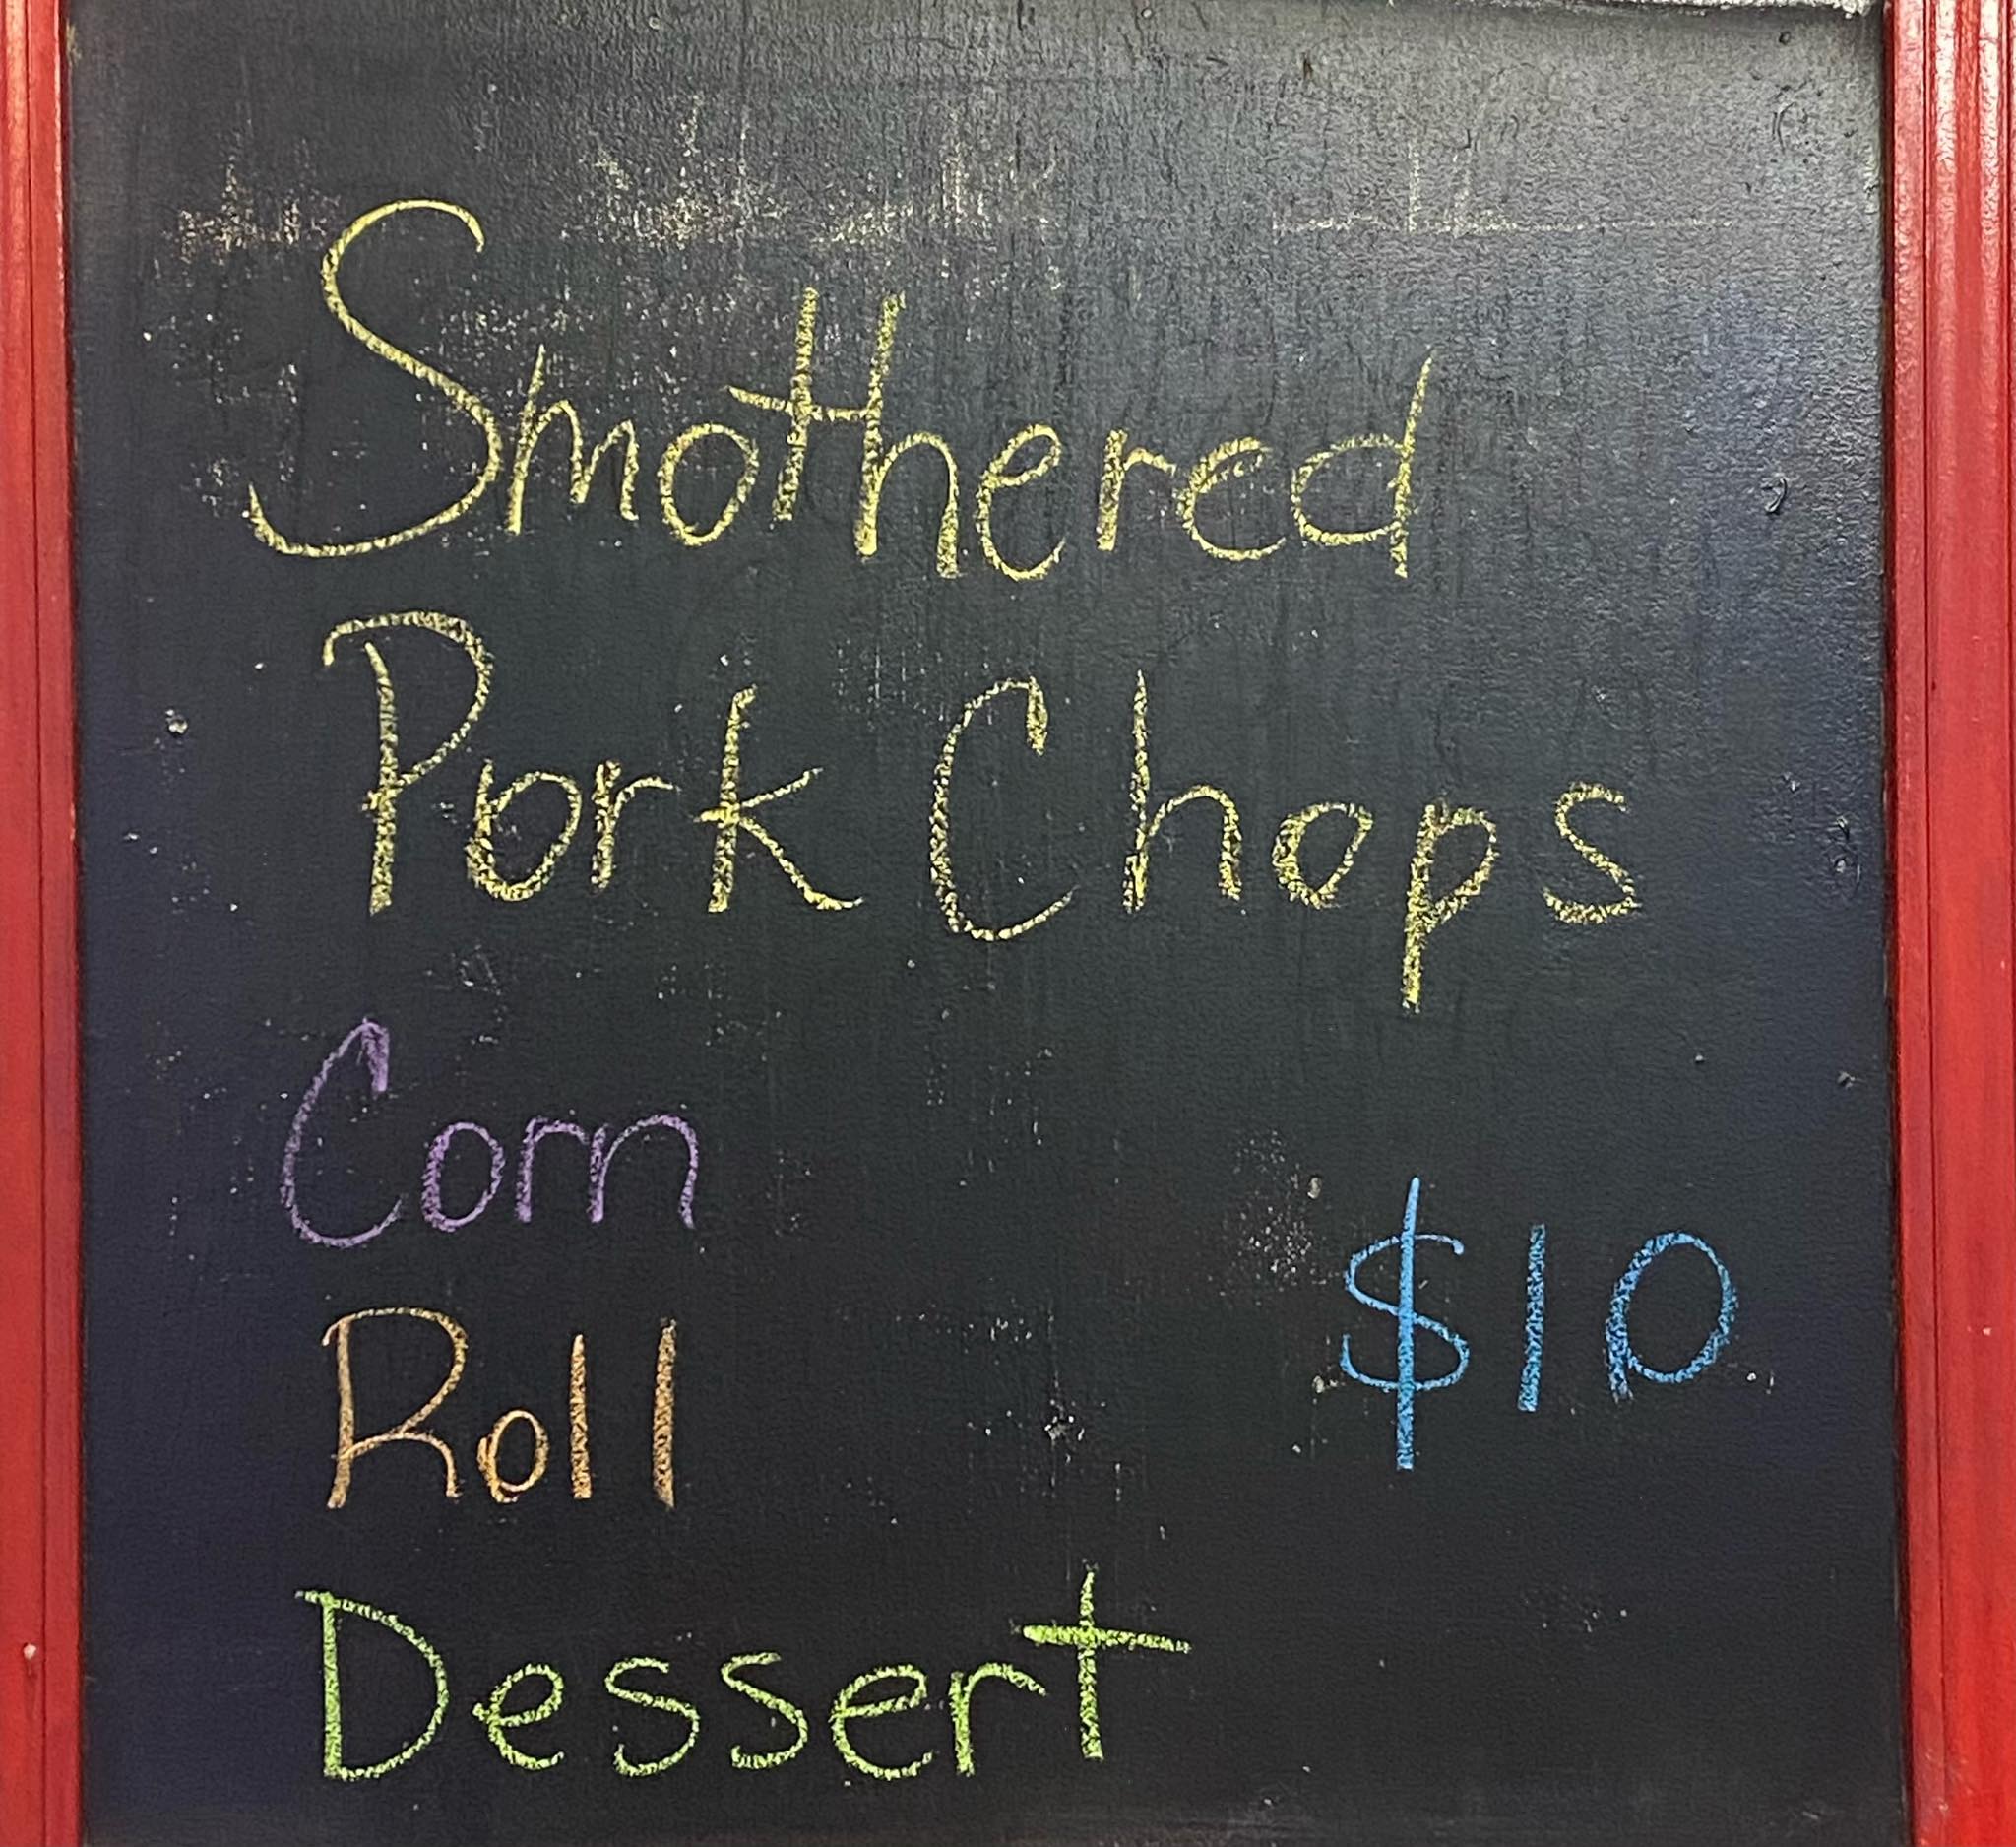 Smothered
Pork Chops
Corn
$10
Roll
Dessert